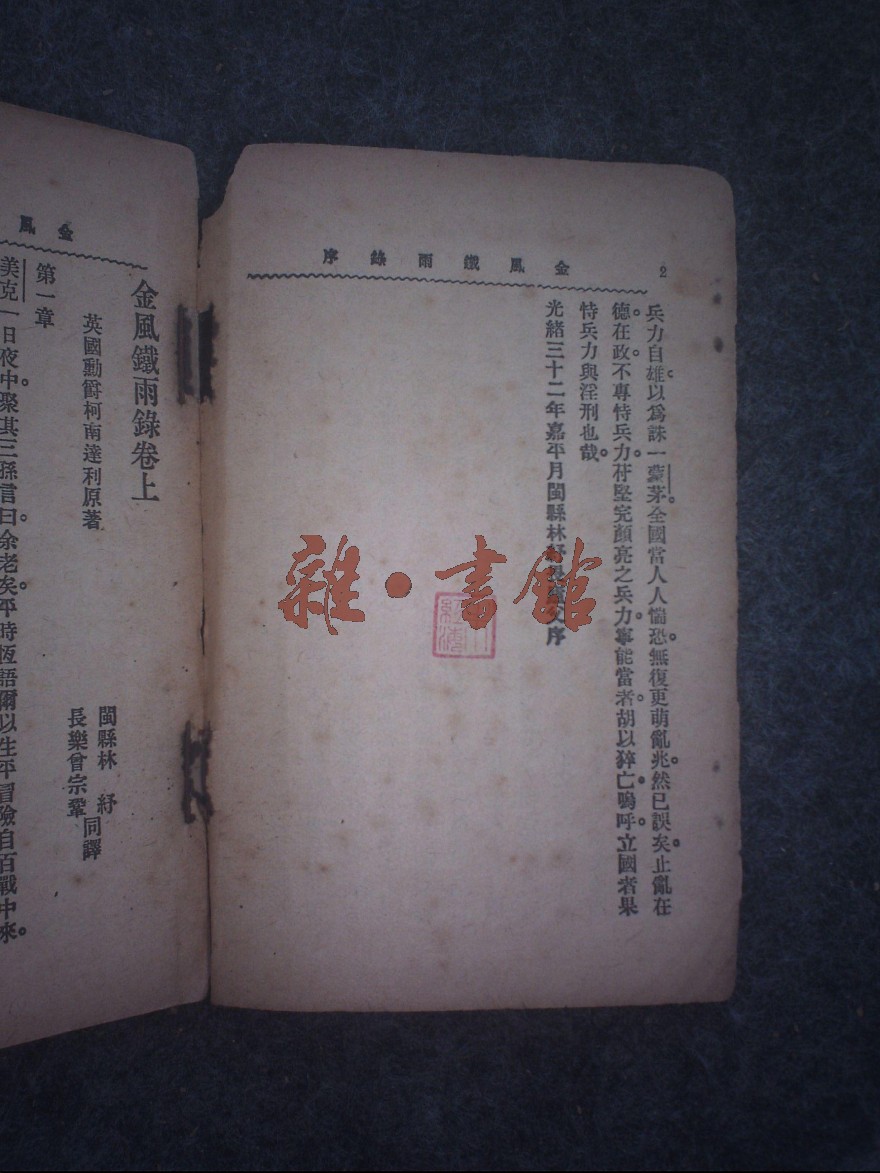 2
金風鐵雨錄序
兵力自雄以爲誅一蒙茅。全國當人人惴恐。無復更萌亂兆。然已誤矣。止亂在
德。在政。不專恃兵力。苻堅完顏亮之兵力。寧能當者。胡以猝亡。嗚呼。立國者果
恃兵力與淫刑也哉。
光緒三十二年嘉平月閩縣林紓 序
雜·書館
金風
金風鐵雨錄卷上
英國勳爵柯南達利原著
閩縣林紓
長樂曾宗鞏
同譯
第一章
美克一日夜中。聚其三孫言曰。余老矣。平時恆語爾以生平冒險自百戰中來。